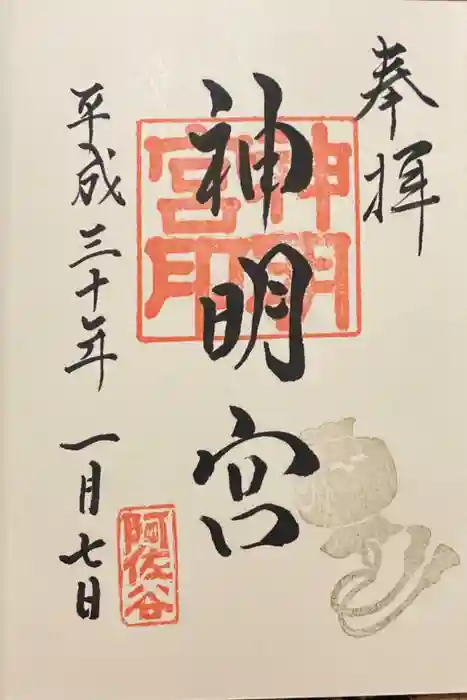 奉拝
神明宮
神明宮印
平成三十年一月七日
阿佐谷